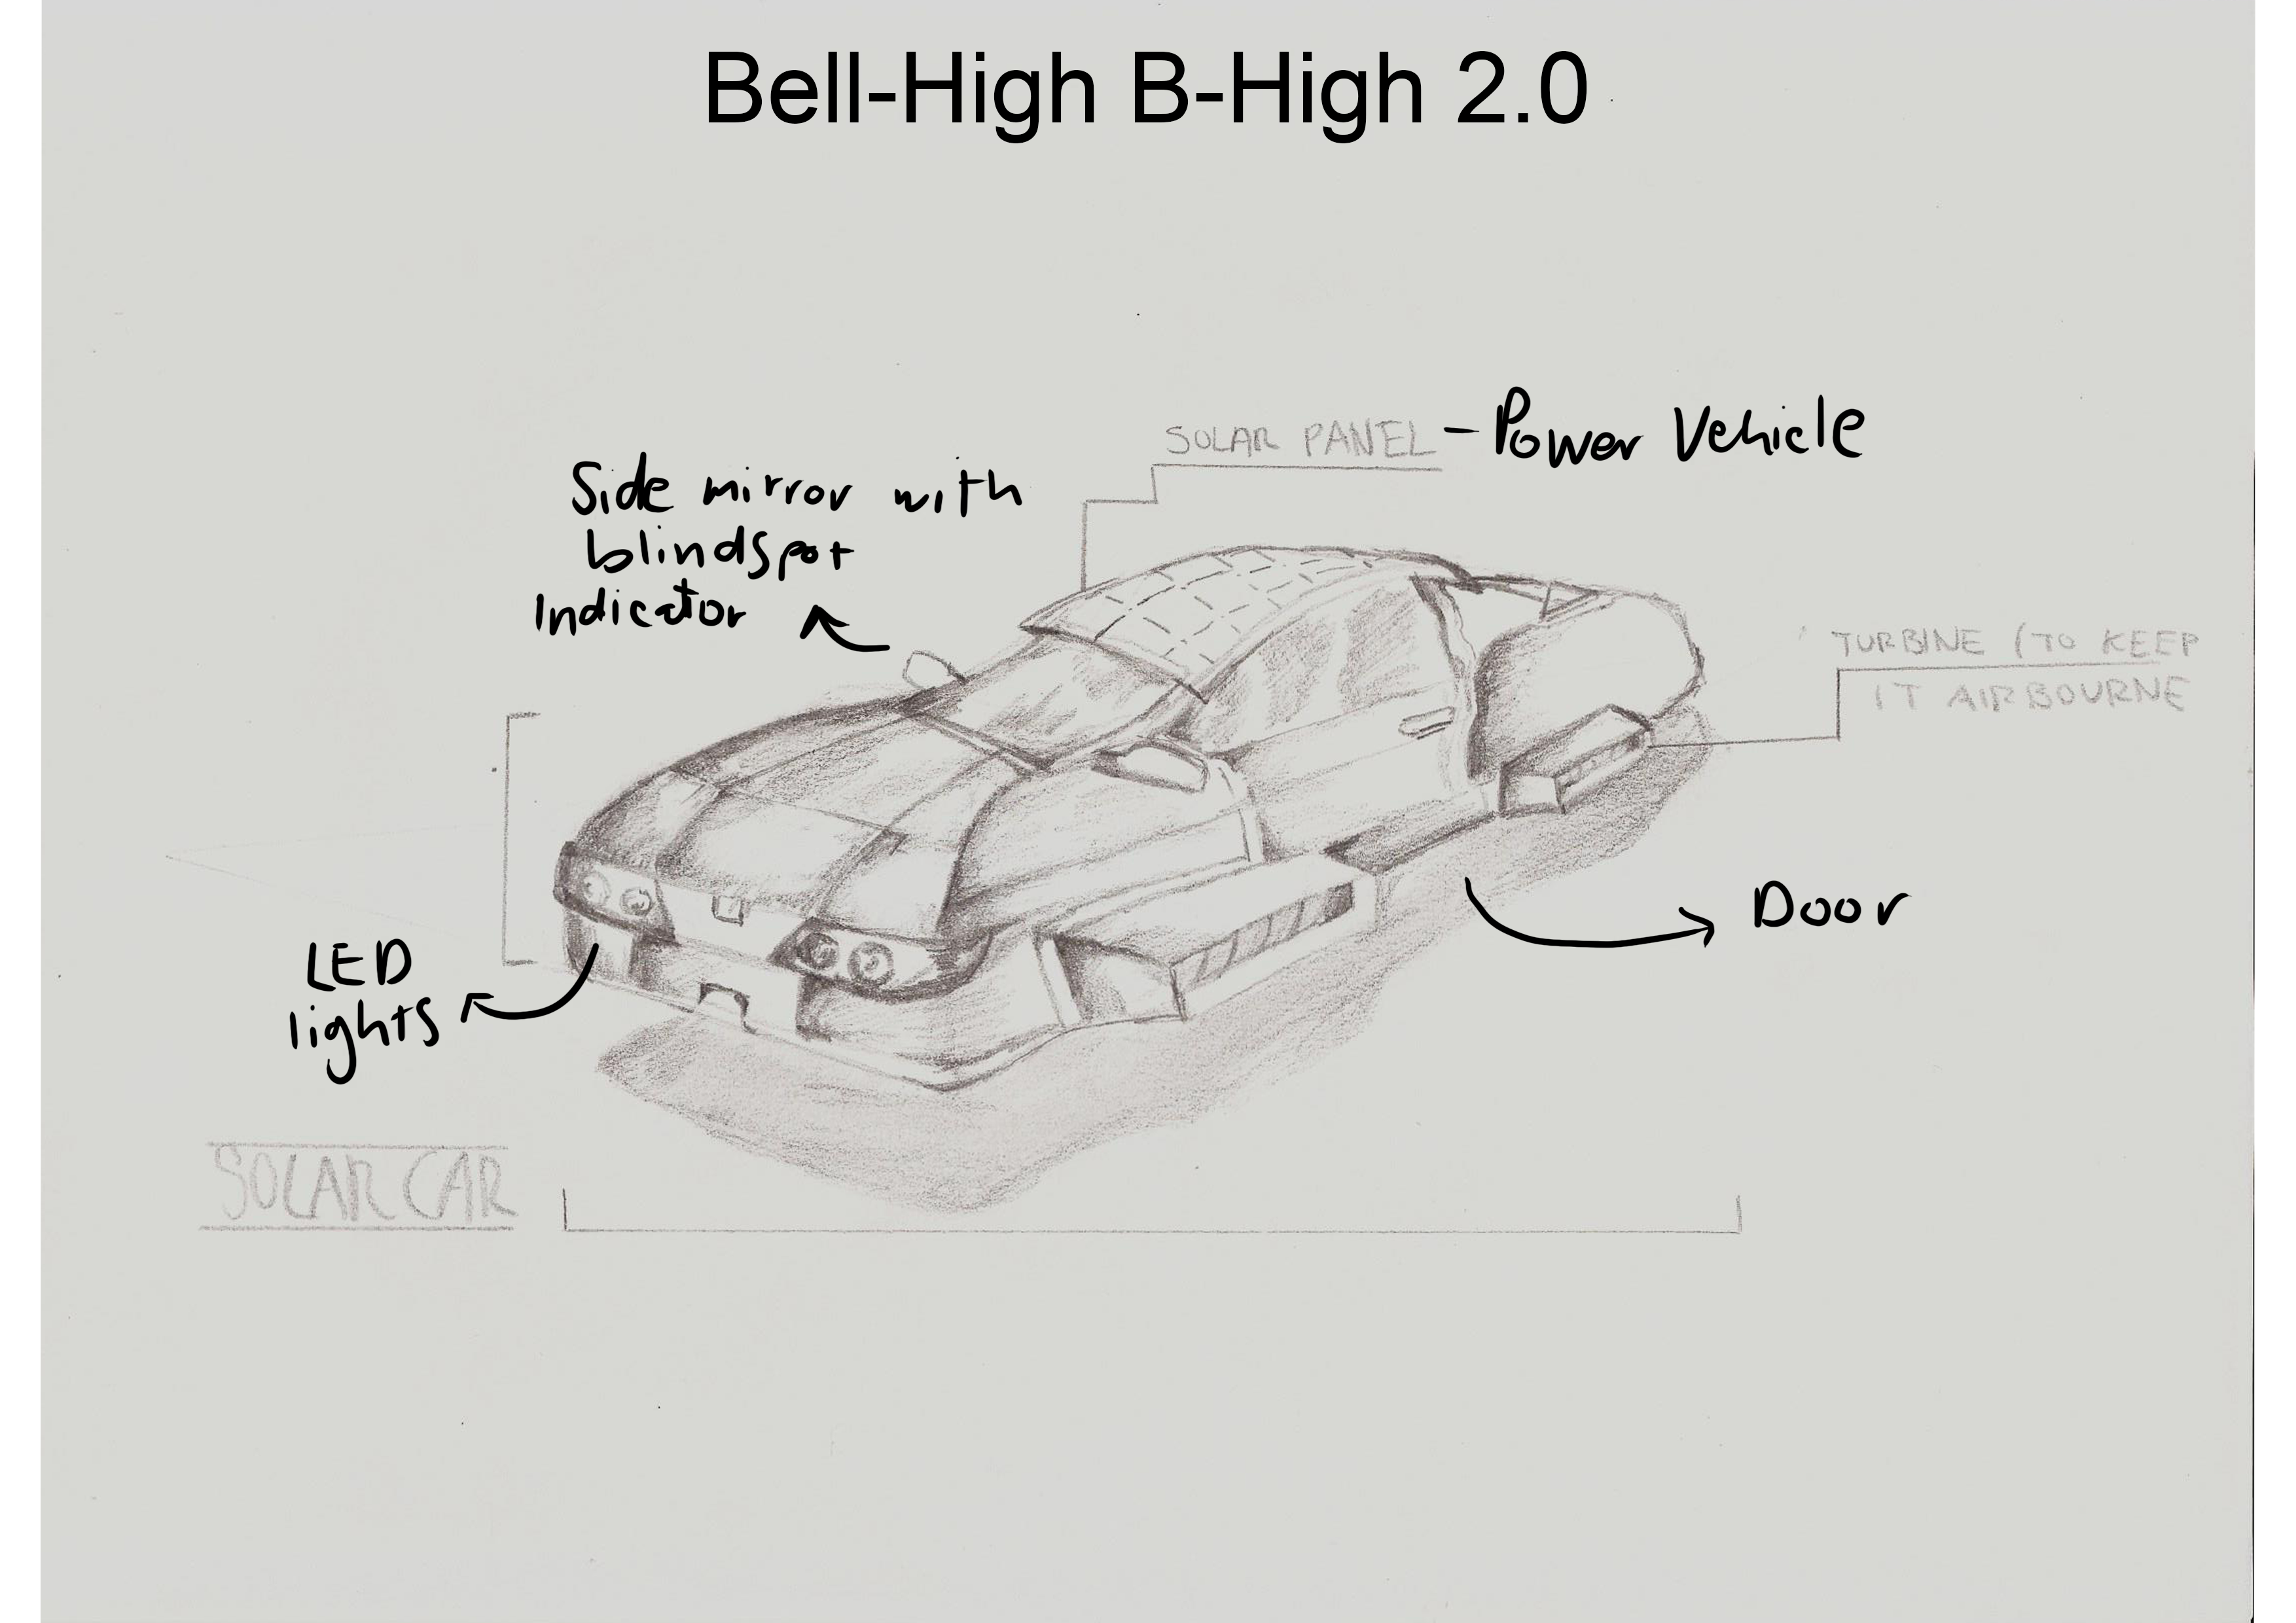 Bell-High B-High 2.0
SOLAR PANEL - Power Vehicle
Side mirror with
blindspot
Indicator
TURBINE (TO KEEP
IT AIRBOURNE
Door
LED
lights
SOLAR CAR